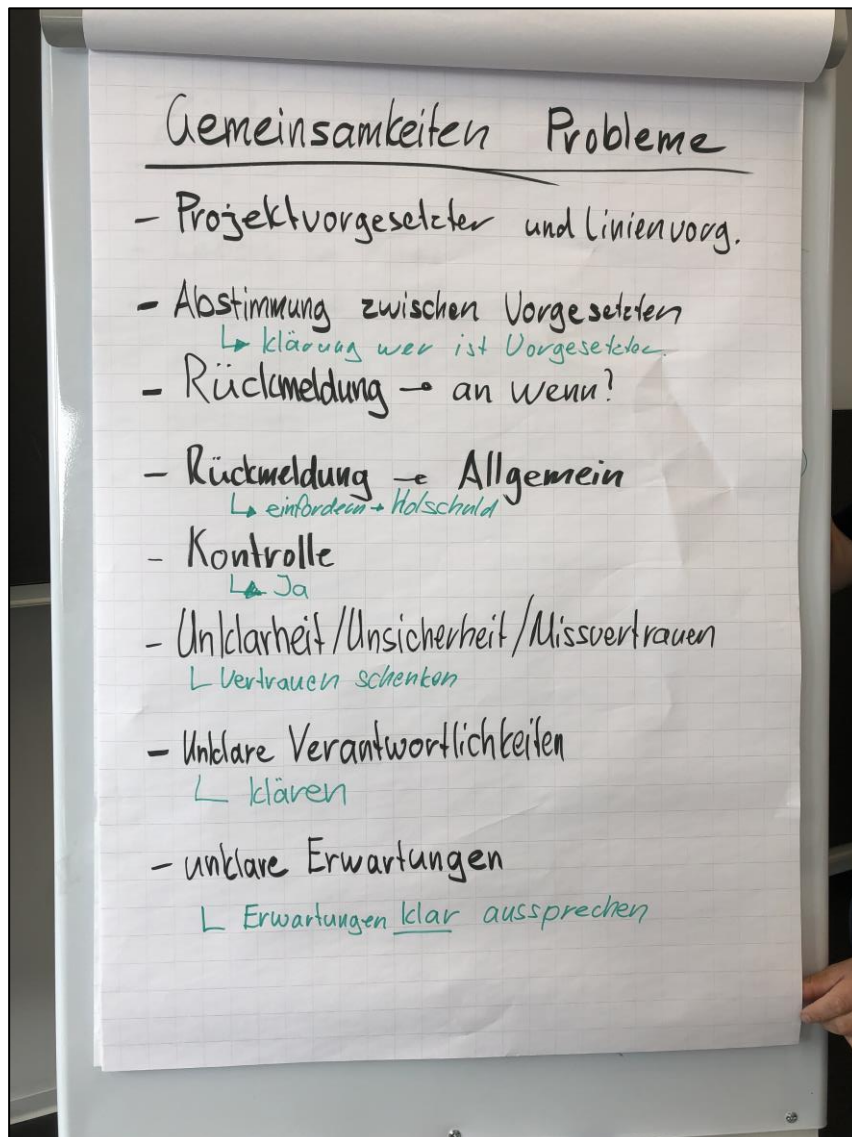 Gemeinsamkeiten Probleme
- Projektvorgesetzter und Linienvorg.
- Abstimmung zwischen Vorgesetzten
↳ klärung wer ist Vorgesetzter
- Rückmeldung → an wenn?
- Rückmeldung → Allgemein
↳ einfordern → Holschuld
- Kontrolle
↳ Ja
- Unklarheit/Unsicherheit/Missvertrauen
└ Vertrauen schenken
- Unklare Verantwortlichkeiten
└ klären
- unklare Erwartungen
└ Erwartungen klar aussprechen